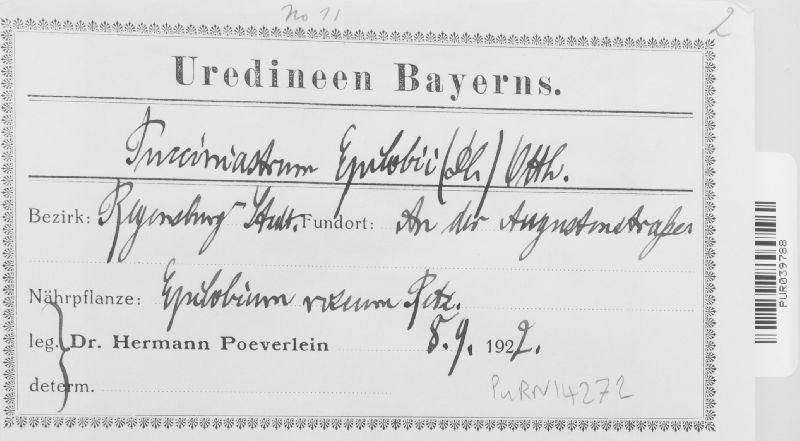 No 11
2
Uredineen Bayerns.
Pucciniastrum Epilobii (Dl.) Otth.
Bezirk: Regensburg-Stadt. Fundort: An der Augustenstraße
Nährpflanze: Epilobium roseum Retz.
leg. Dr. Hermann Poeverlein 8. 9. 1922.
determ.
PURN14272
PUR039788